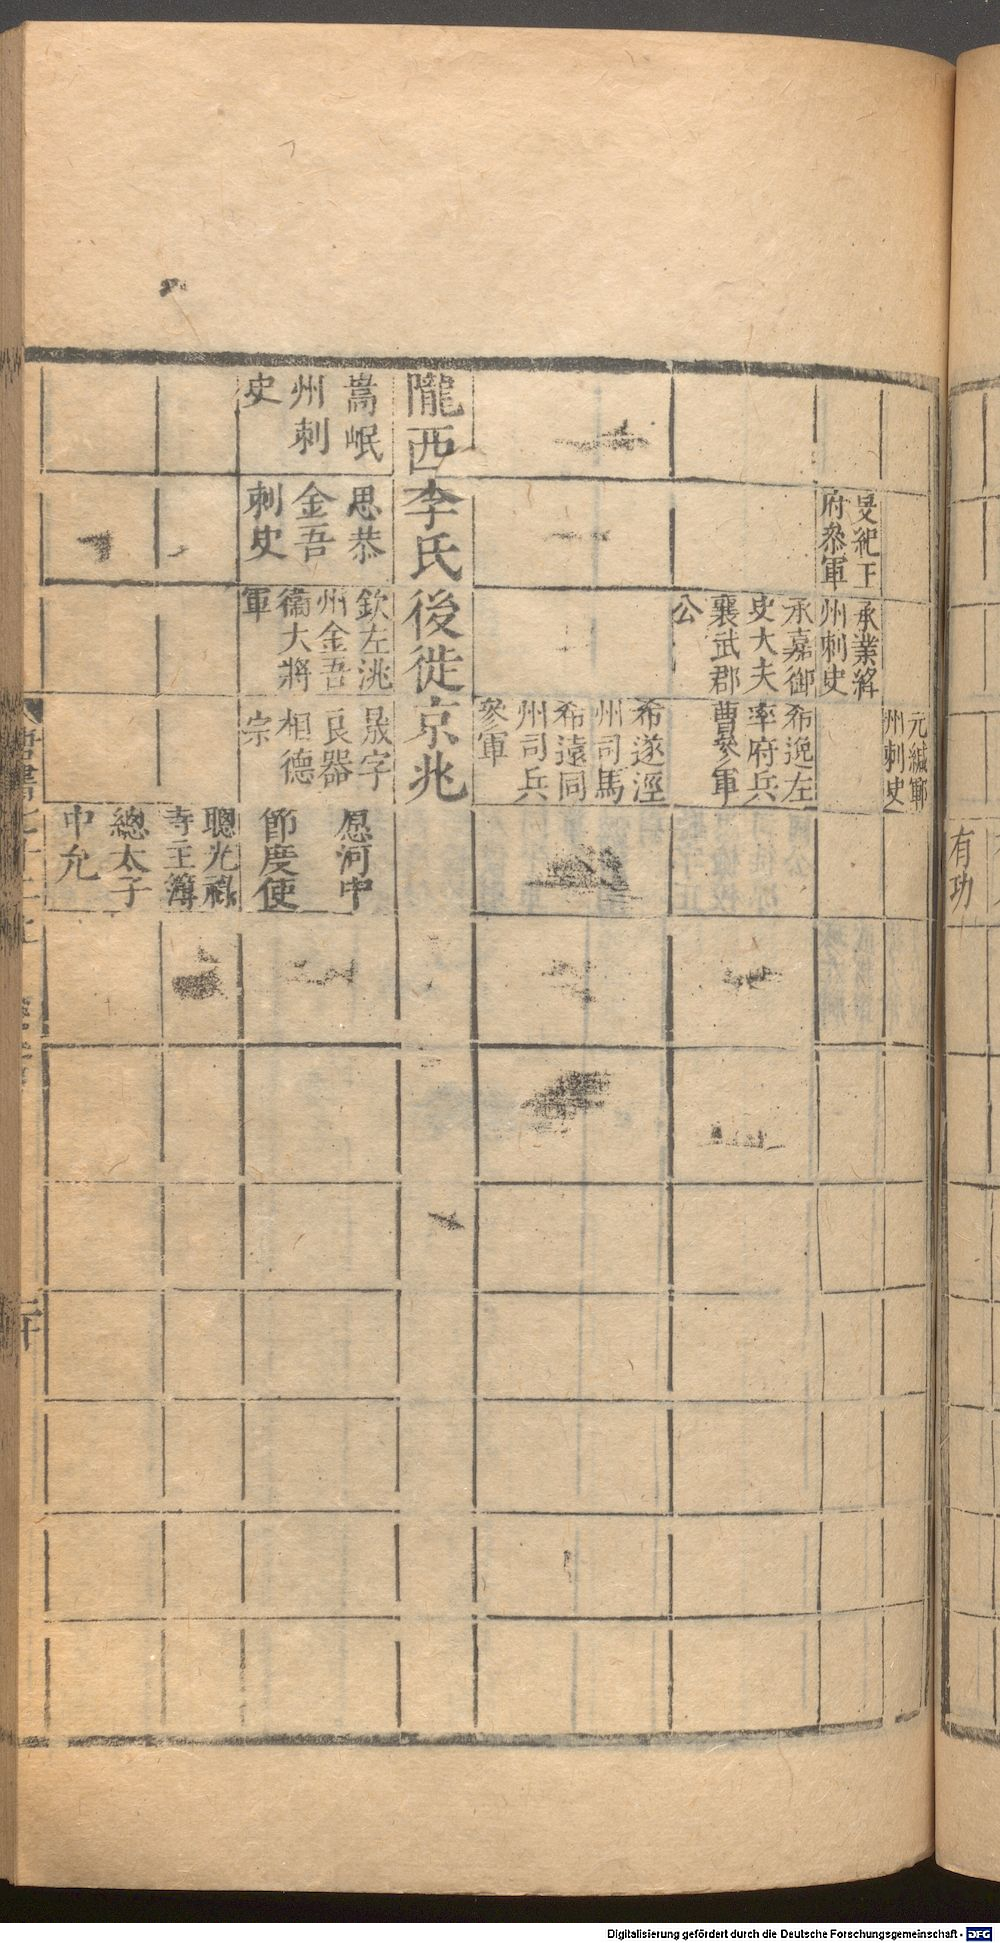 元緘鄆
州刺史
旻紀王
府叅軍
承業絳
州刺史
承嘉御
史大夫
襄武郡
公
希逸左
率府兵
曹參軍
希遂涇
州司馬
希遠同
州司兵
參軍
隴西李氏後徙京兆
嵩岷
州刺
史
思恭
金吾
刺史
欽左洮
州金吾
衞大將
軍
晟字
良器
相德
宗
愿河中
節度使
聰光祿
寺主簿
總太子
中允
有功
Digitalisierung gefördert durch die Deutsche Forschungsgemeinschaft - DFG